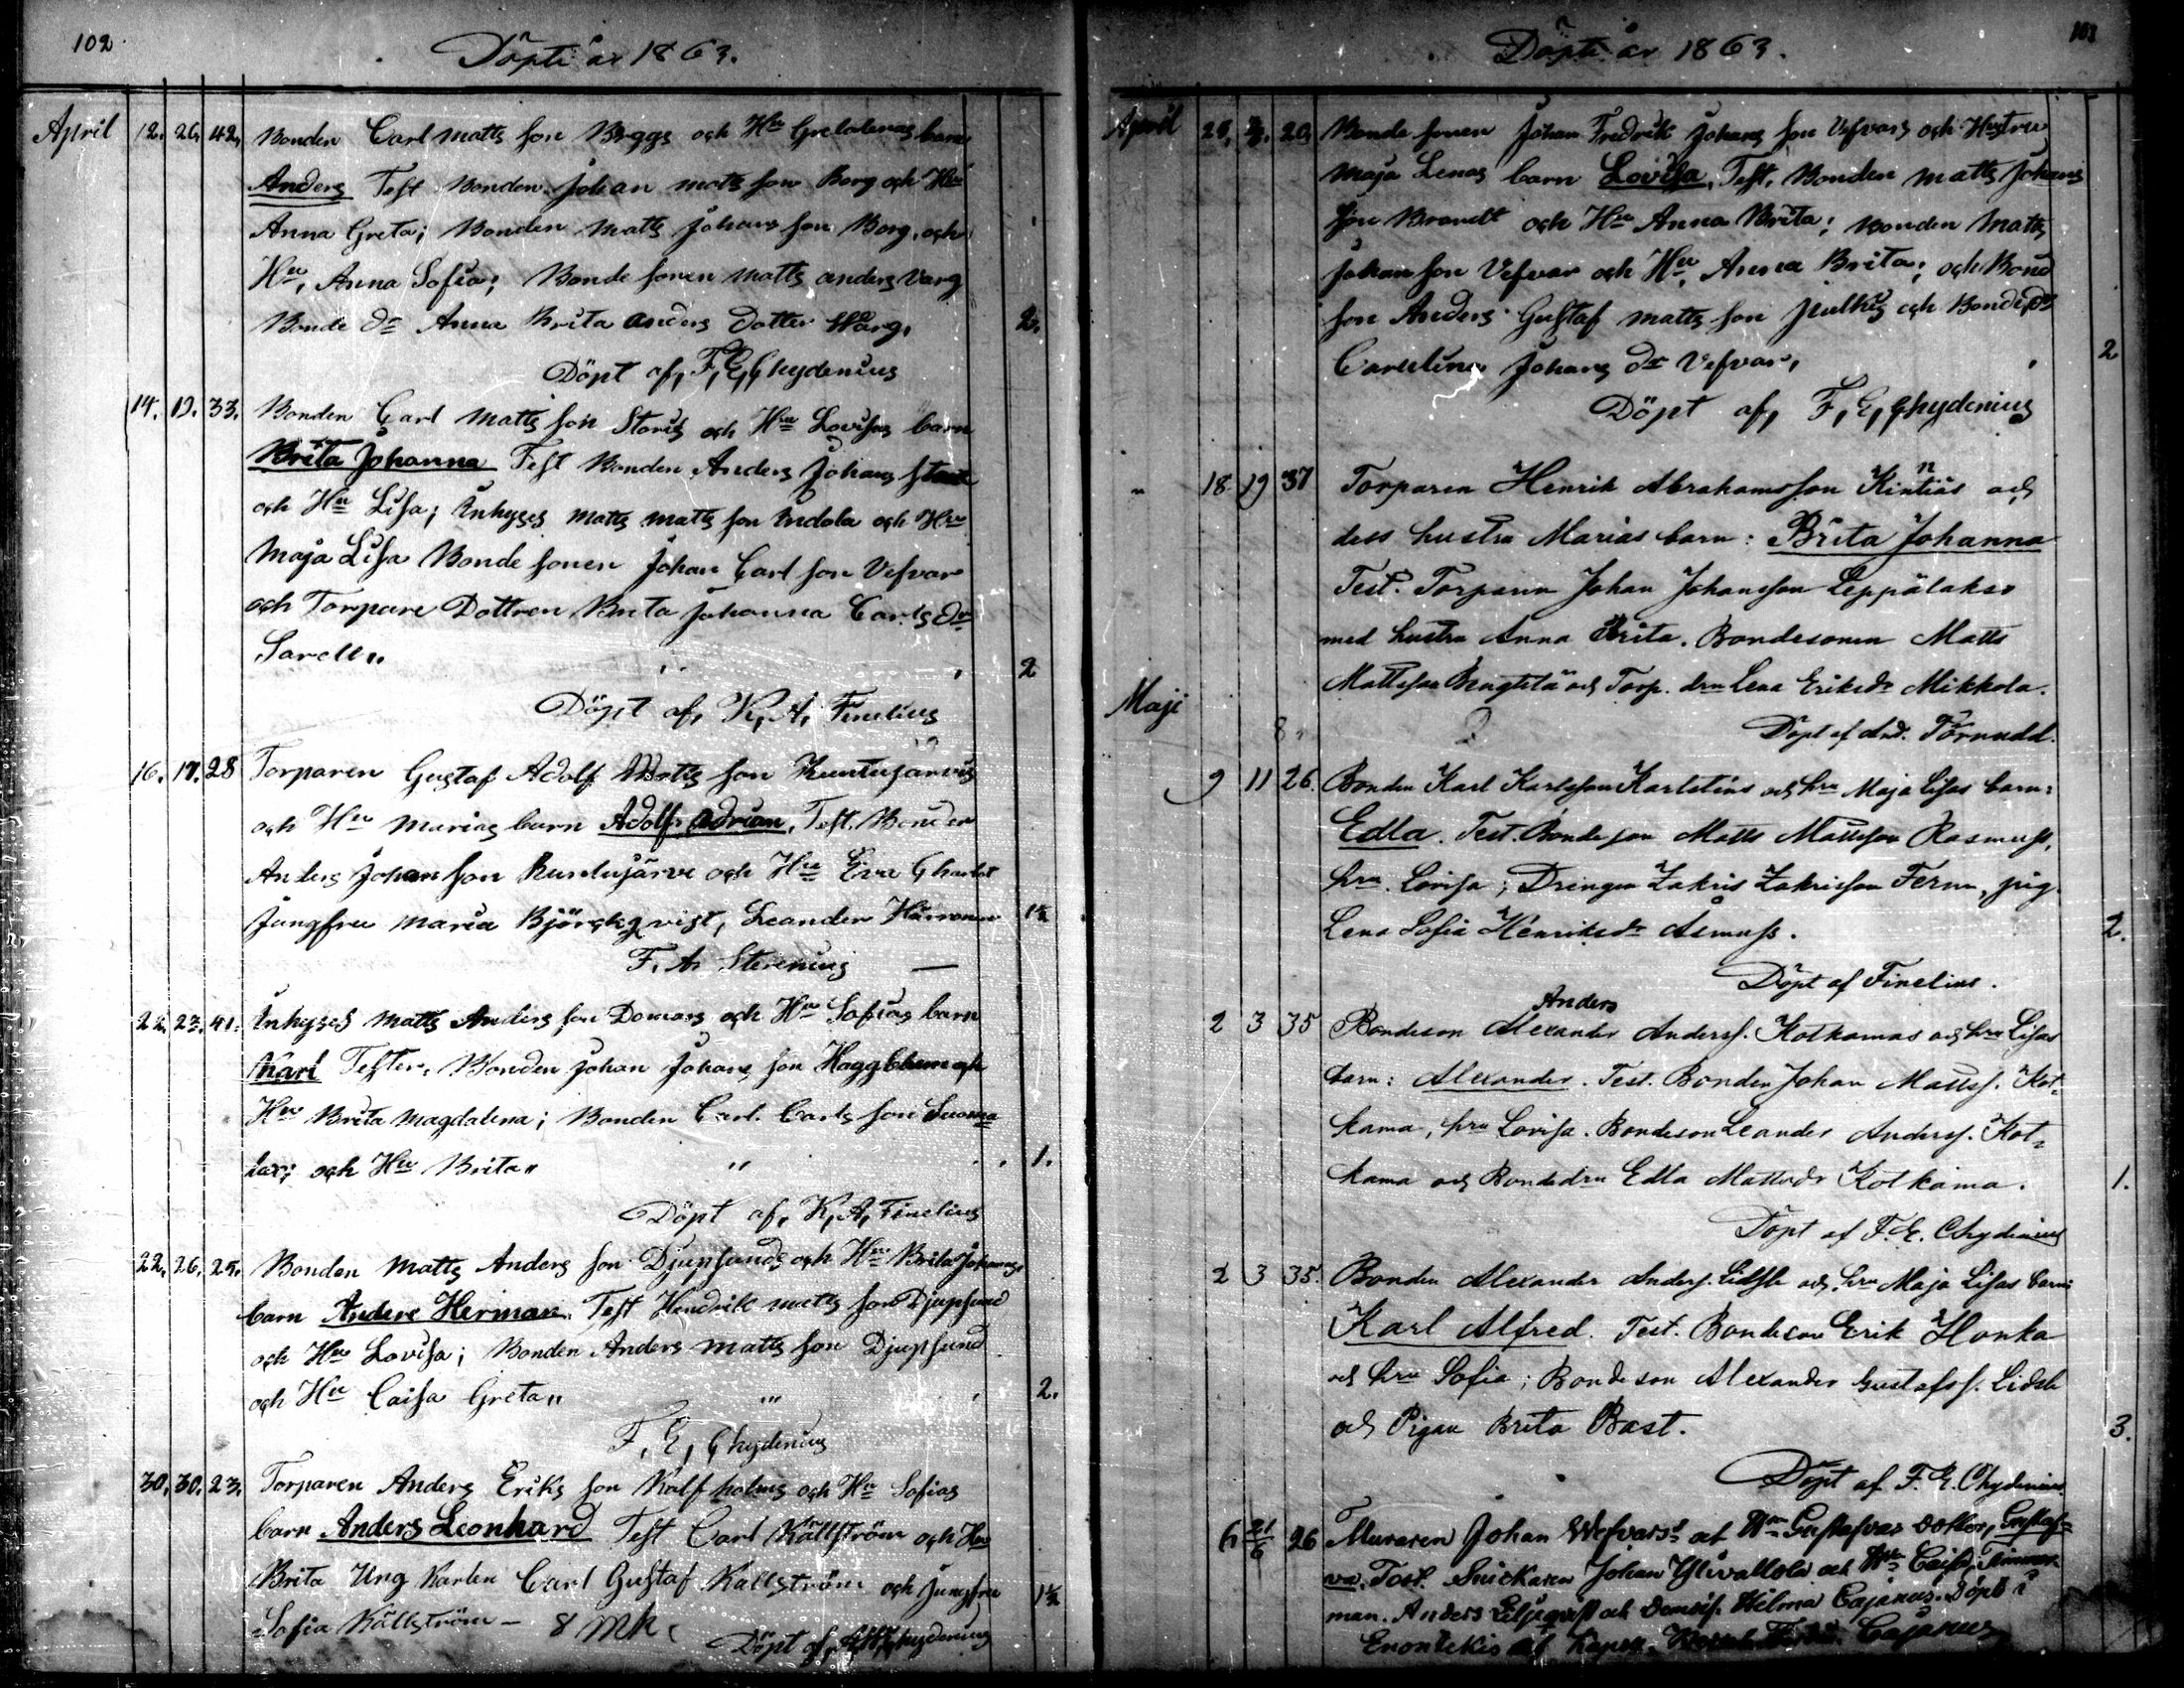 102
Döpte år 1863.
April 12. 26. 42. Bonden Carl Matts son Byggs och Hu Gretalenas barn
Anders Test Bonden Johan Matts son Borg och Hu
Anna Greta; Bonden Matts Johans son Borg, och
Hu, Anna Sofia; Bonde sonen Matts Anders Varg
Bonde dr Anna Brita Anders dotter Warg, 2.
Döpt af, F, E, Chydenius
14. 19. 33. Bonden Carl Matts son Storis och Hu Lovisas barn
Brita Johanna Test Bonden Anders Johans
och Hu Lisa; Inhyses Matts Matts son Indola och Hu
Maja Lisa Bonde sonen Johan Carl son Vefvar
och Torpare Dottren Brita Johanna Carls dr
Sarell,, 2
Döpt af, K, A, Finelius
16. 17. 28 Torparen Gustaf Adolf Matts son Kuntujärvis
och Hu Marias barn Adolf Adrian, Test. Bonden
Anders Johan son Kuntujärvi och Hu Eva Charlot
Jungfru Maria Björckqvist, Leander 1½
F. A. Stenius —
22. 23. 41. Inhyses Matts Anders son Domars och Hu Sofias barn
Karl Tester, Bonden Johan Johans son Haggblum och
Hu Brita Magdalena; Bonden Carl Carls son Suoma
lax; och Hu Brita,, ,, 1.
Döpt af, K, A, Finelius
22. 26. 25. Bonden Matts Anders son Djupsunds och Hu Brita Johannas
barn Anders Herman. Test Hendrik Matts son Djupsund
och Hu Lovisa; Bonden Anders Matts son Djupsund
och Hu Caisa Greta,, ,, 2.
F, E, Chydenius
30. 30. 23. Torparen Anders Eriks son Kalfholms och Hu Sofias
barn Anders Leonhard Test Carl Källström och Hu
Brita Ung Karlen Carl Gustaf Källström och Jungfru
Sofia Källström — 8 Mk. 1½
Döpt af, Chydenius
Döpte år 1863.
April 20. Bonde sonen Johan Fredrik Johans son Vefvars och Hustru
Maja Lenas barn Lovisa, Test. Bonden Matts Johans
son Brandt och Hu Anna Brita; Bonden Matts
Johan son Vefvar och Hu, Anna Brita; och Bond
son Anders Gustaf Matts son och Bonde dr
Carolina Johans dr Vefvar, 2
Döpt af, F, E, Chydenius
" 18 19 37 Torparen Henrik Abrahamsson Kintiäs och
dess hustru Marias barn: Brita Johanna
Test. Torparen Johan Johansson Leppälakso
med hustru Anna Brita. Bondesonen Matts
Mattsson och Torp. drn Lena Eriksdr Mikkola.
Döpt af And. Törnudd.
Maji
9 11 26. Bonden Karl Karlsson Karlsténs och hru Maja Lisas barn:
Edla. Test. Bondeson Matts Mattsson Rasmuss,
hru. Lovisa; Drängen Zakris Zakrisson Ferm, pig.
Lena Sofia Henriksdr Åsmuss. 2.
Döpt af Finelius.
Anders
2 3 35 Bondeson Alexander Anderss. Kotkamas och hru Lisas
barn: Alexander. Test. Bonden Johan Mattss. Kot=
kama, hru Lovisa. Bondeson Leander Anderss. Kot=
kama och Bondedrn Edla Mattsdr Kotkama. 1.
Döpt af F. E. Chydenius
2 3 35. Bonden Alexander Anderss. Lidsle och hru Maja Lisas barn:
Karl Alfred. Test. Bondeson Erik Honka
och hru Sofia; Bondeson Alexander Gustafss. Lidsle
och Pigan Brita Bast. 3.
Döpt af F. E. Chydenius.
6 21/6 26 Muraren Johan Wefvars och Hn Gustafvas dotter, Gustaf=
va. Test. Snickaren Johan Ylivallola och Hn Caisa, Timmer
man. Anders Liljeqvist och Demois. Hilma Cajanus. Döpt i
Enontekis af Kapell. Cajanus